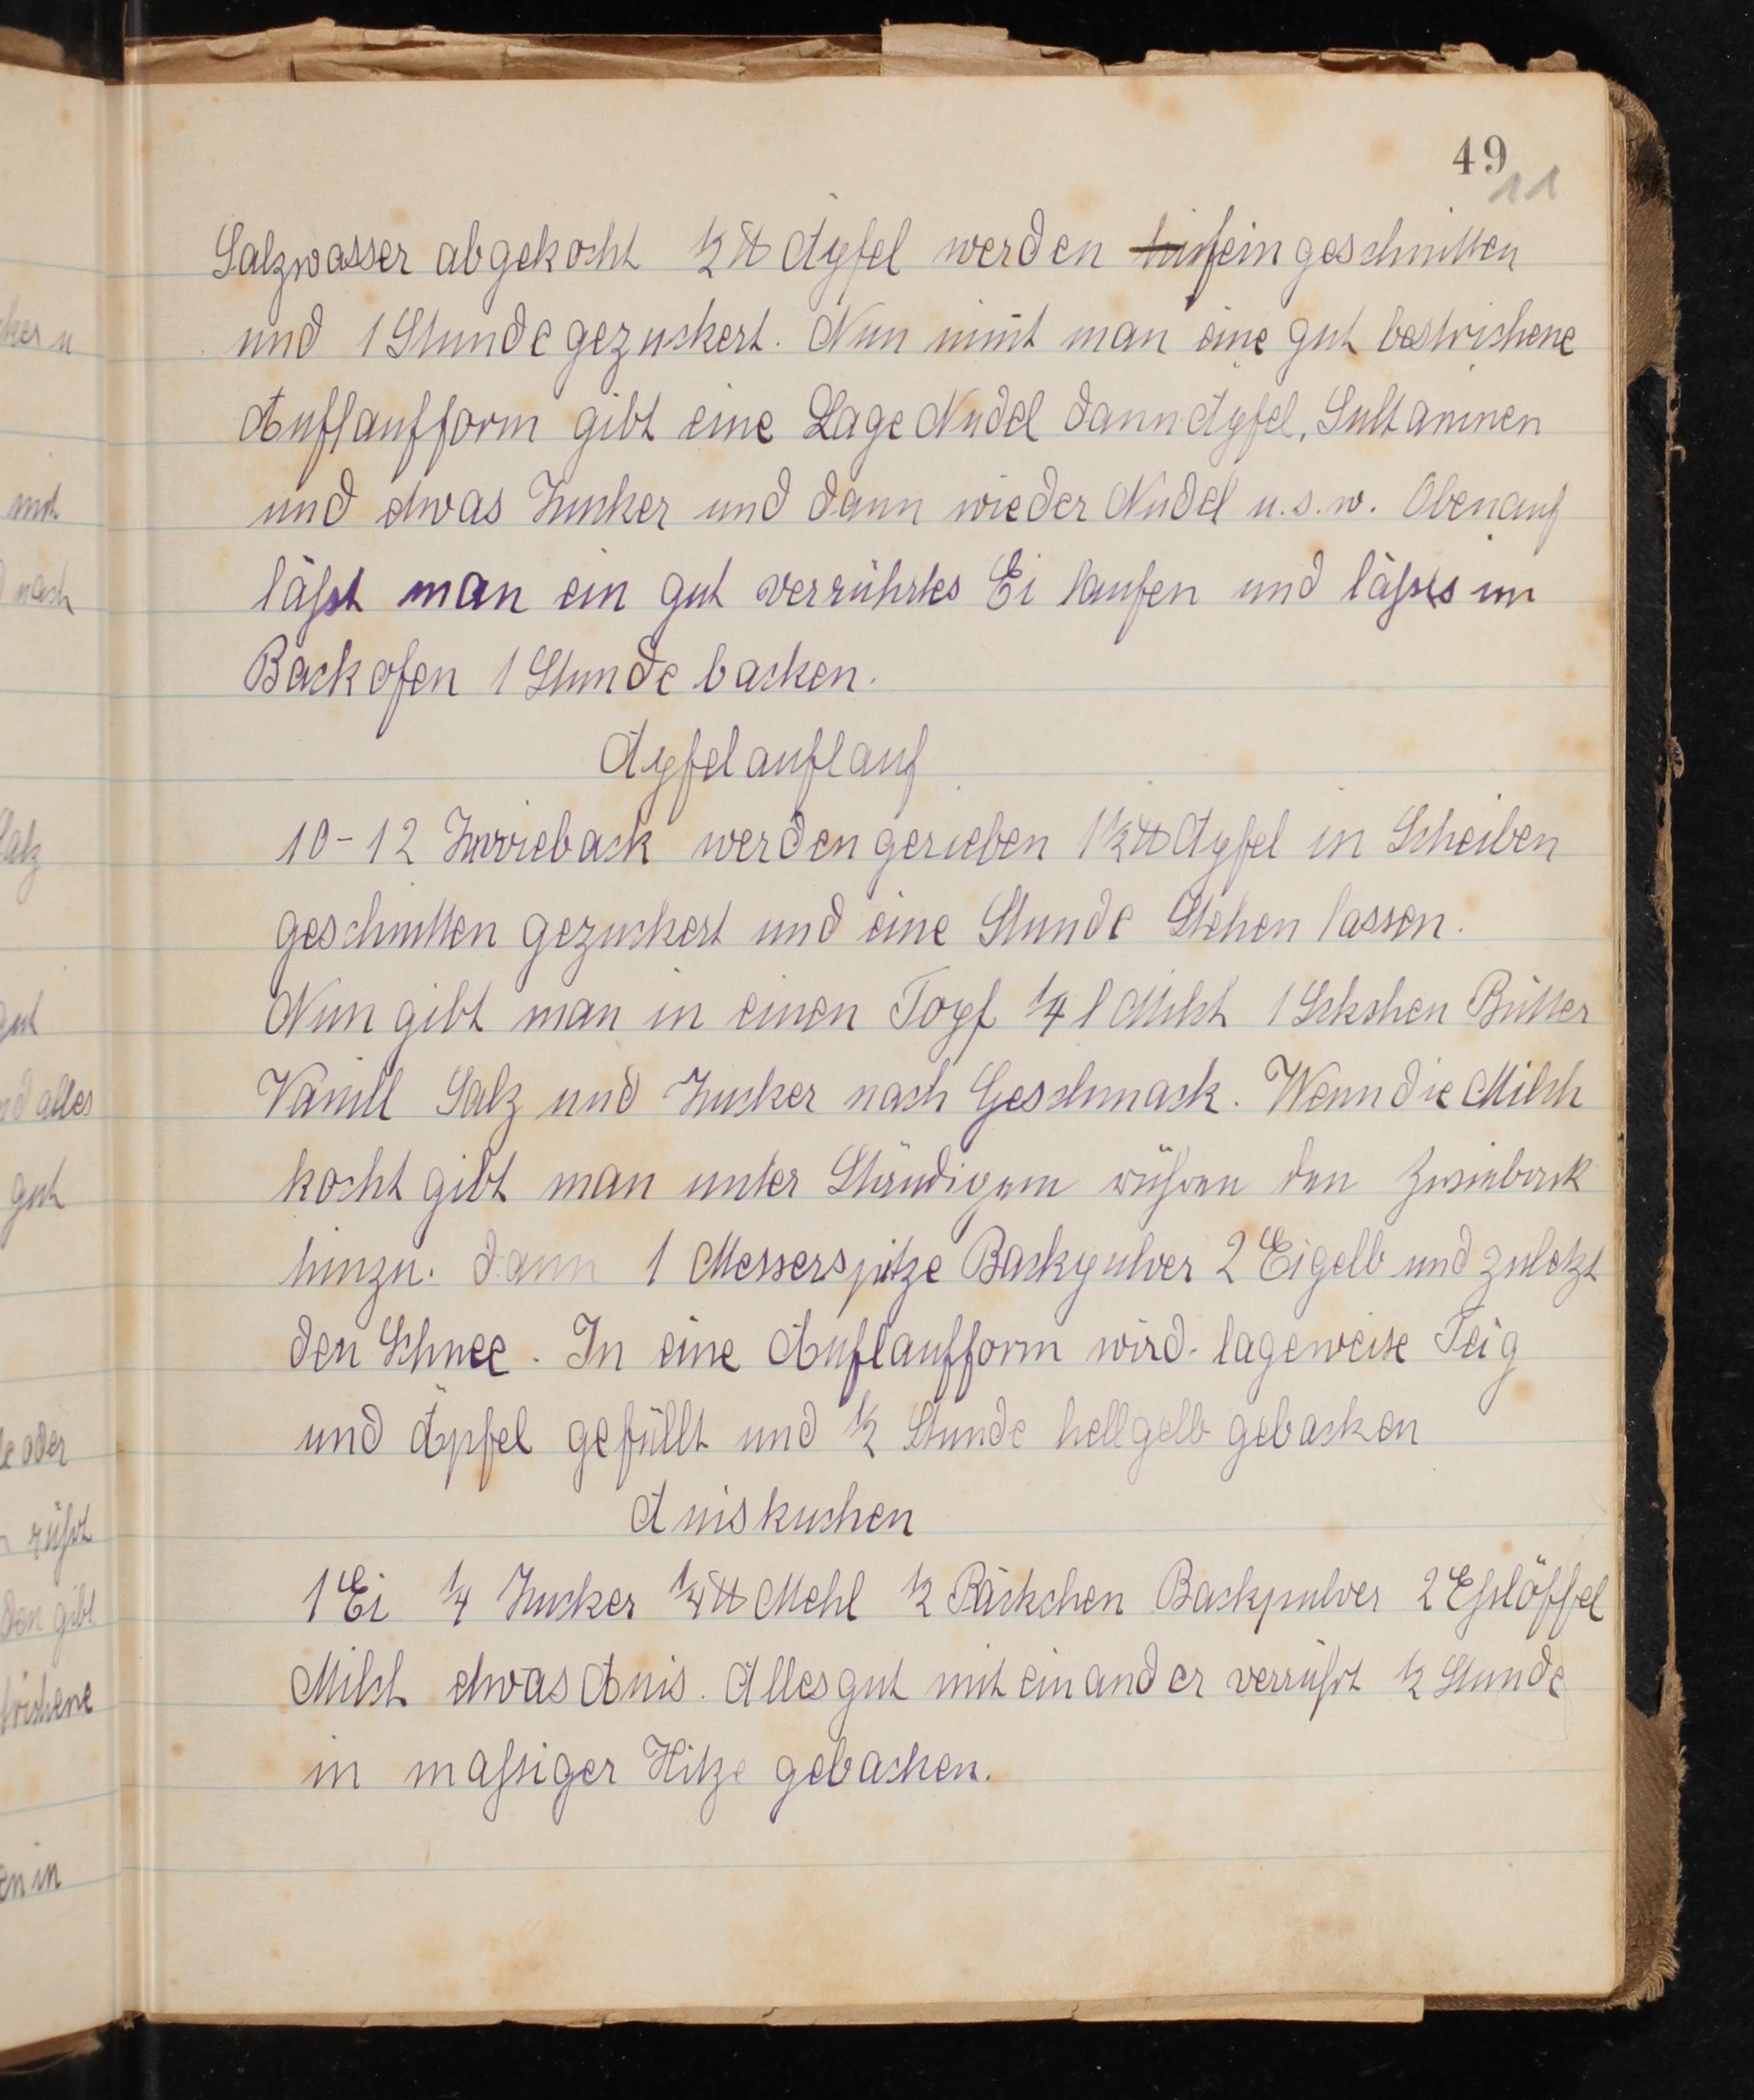 49
11
Salzwasser abgekocht ½ ℔ Äpfel werden fein geschnitten
und 1 Stunde gezuckert. Nun nim̄t man eine gut bestrichene
Auflaufform gibt eine Lage Nudel dann Äpfel, Sultaninen
und etwas Zucker und dann wieder Nudel u.s.w. Obenauf
läßt man ein gut verrührtes Ei laufen und läßts im
Backofen 1 Stunde backen.
Apfelauflauf
10-12 Zwieback werden gerieben 1½ ℔ Äpfel in Scheiben
geschnitten gezuckert und eine Stunde Stehen lassen.
Nun gibt man in einen Topf ¼ l Milch 1 Stckchen Butter
Vanill Salz und Zucker nach Geschmack. Wenn die Milch
kocht gibt man unter Ständigem rühren den Zwieback
hinzu. dann 1 Messerspitze Backpulver 2 Eigelb und zuletzt
den Schnee. In eine Auflaufform wird lageweise Teig
und Äpfel gefüllt und ½ Stunde hellgelb gebacken
Aniskuchen
1 Ei ¼ Zucker ¼ ℔ Mehl ½ Päckchen Backpulver 2 Eßlöffel
Milch etwas Anis. Alles gut miteinander verrührt ½ Stunde
in massiger Hitze gebacken.
ker u
mit
nach
Salz
gut
nd alles
gut
oder
rührt
den gibt
trichene
en in